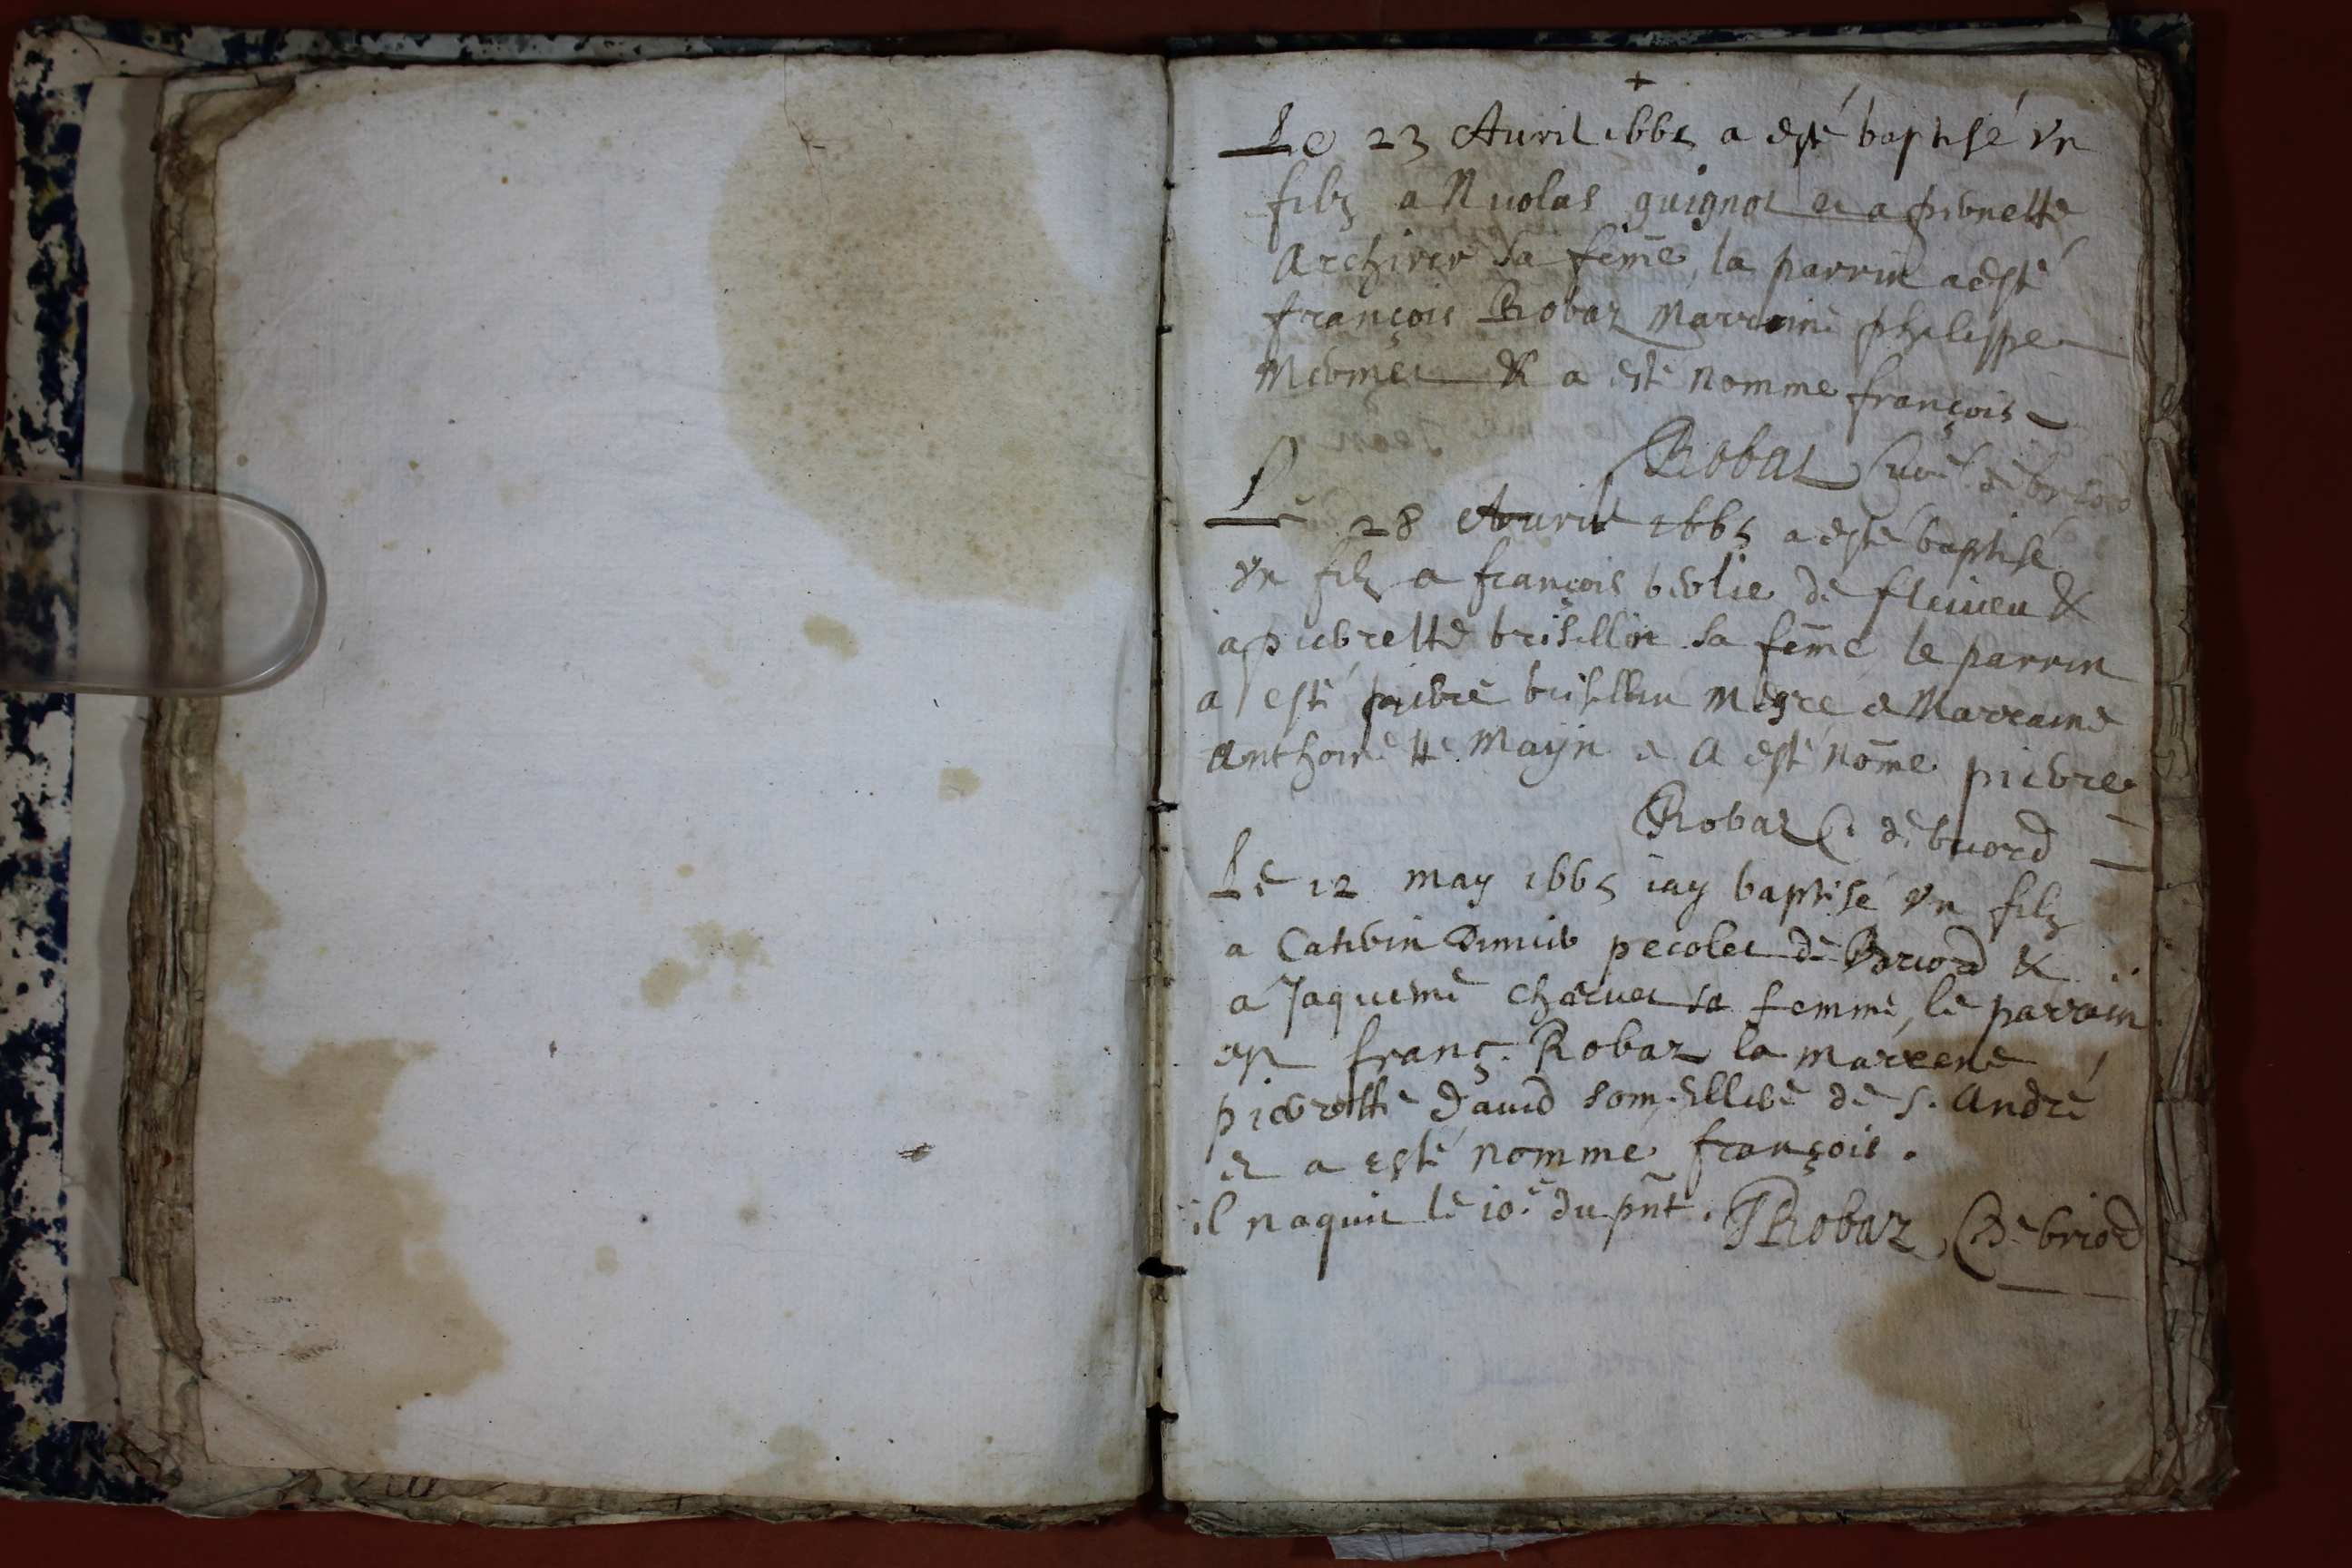 +
Le 23 Avril 1665 a esté baptisé vn
filz a Nicolas guignot et a pernette
Archirer sa feme, la parrin a esté
françois Robaz Marraine phelippe
& a esté nomme françois
Robaz Curé de briord
Le 28 Avril 1665 a esté baptisé
vn filz a françois de fleuieu &
a pierrette brisellin sa feme le parrin
a esté pierre brisellin et Marraine
Anthoinette Mayin e a esté nomé pierre
Robaz C. de briord
Le 12 may 1665 iay baptisé vn filz
a pecolet de Briord &
a Jaqueme Charuet sa femme, le parrain
est franç. Robaz la marrene
pierrette Dauid de s. André
et a esté nomme françois.
il naquit le 10e du pnt. Robaz C. de briord